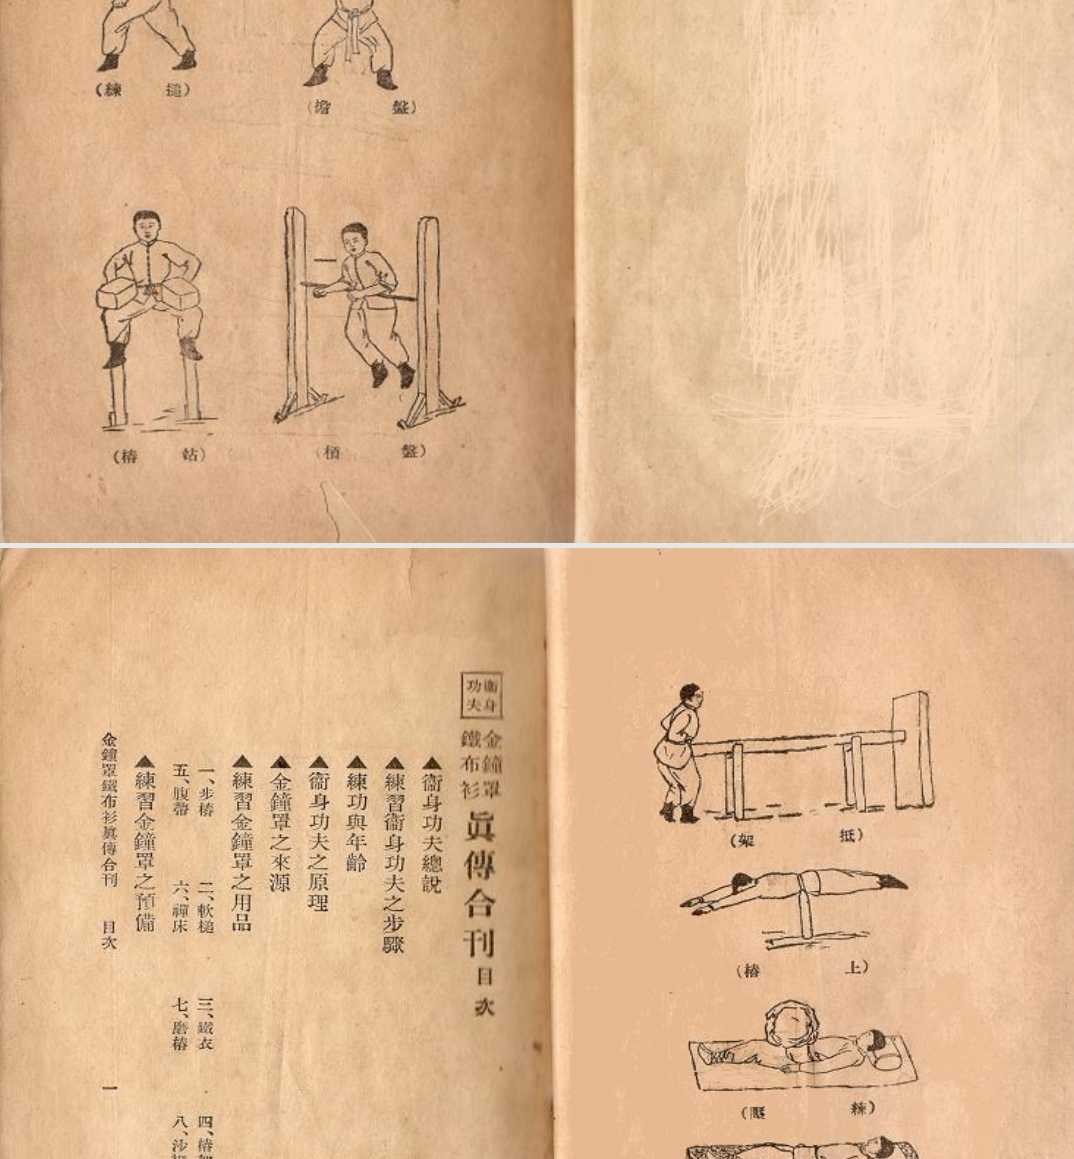 (搥練)
(盤擔)
(站樁)
(盤槓)
衞身功夫
金鐘罩鐵布衫眞傳合刊目次
▲衞身功夫總說
▲練習衞身功夫之步驟
▲練功與年齡
▲衞身功夫之原理
▲金鐘罩之來源
▲練習金鐘罩之用品
一、步樁 二、軟槌 三、鐵衣 四、樁
五、腹帶 六、禪床 七、磨樁 八、沙
▲練習金鐘罩之預備
金鐘罩鐵布衫眞傳合刊 目次 一
(抵架)
(上樁)
(練壓)